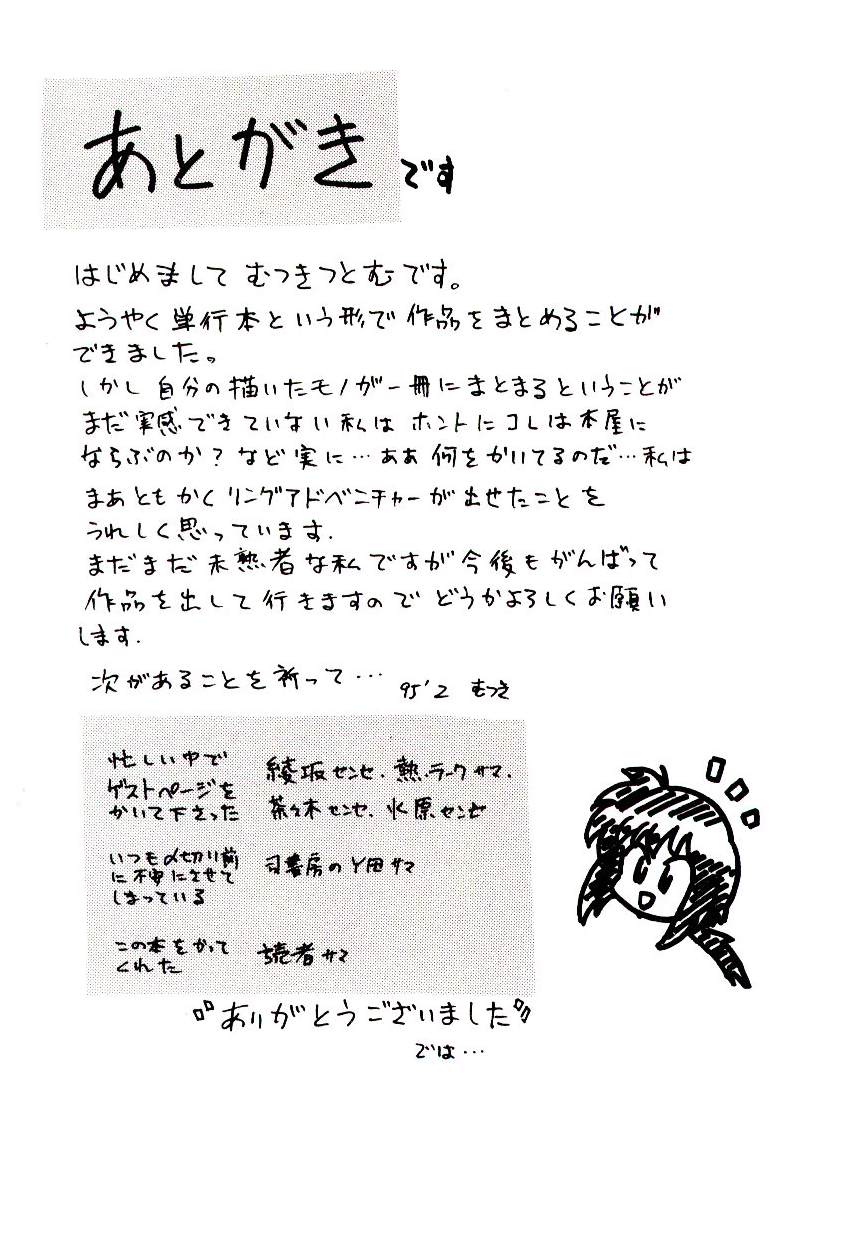 あとがきです
はじめまして むつきつとむです。
ようやく単行本という形で作品をまとめることが
できました。
しかし自分の描いたモノが一冊にまとまるということが
まだ実感できていない私は ホントにコレは本屋に
ならぶのか？など実に…ああ 何をかいてるのだ…私は
まあともかくリングアドベンチャーが出せたことを
うれしく思っています.
まだまだ未熟者な私ですが今後もがんばって
作品を出して行きますので どうかよろしくお願い
します.
次があることを祈って… 95'2 むつき
忙しい中で
ゲストページを
かいて下さった
綾坂センセ. 熱.ラークサマ.
茶々木センセ. 水原.センセ
いつも〆切り前
に不安にさせて
しまっている
司書房のY田サマ
この本をかって
くれた
読者サマ
ありがとうございました
では…